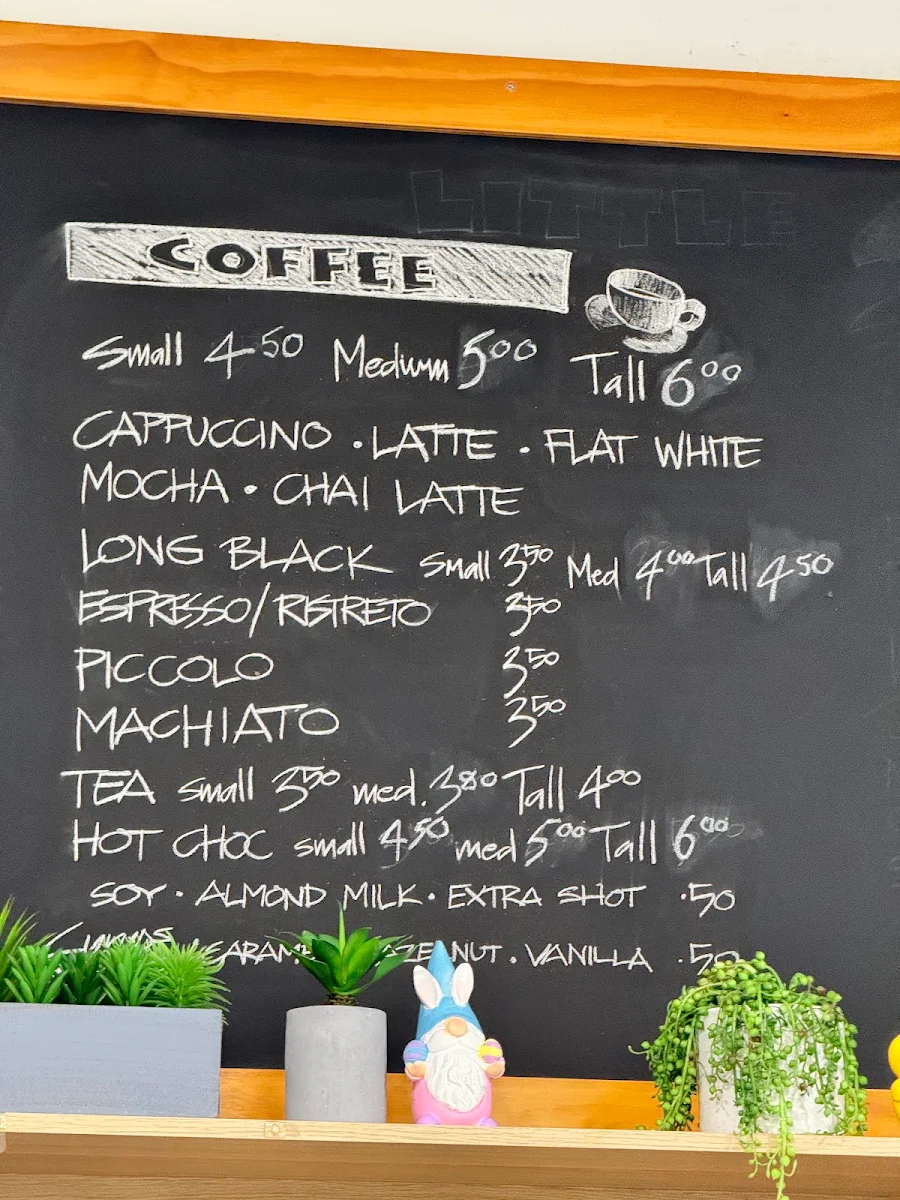 LITTLE
COFFEE
Small 4.50 Medium 5.00 Tall 6.00
CAPPUCCINO . LATTE . FLAT WHITE
MOCHA . CHAI LATTE
LONG BLACK Small 3.50 Med 4.00 Tall 4.50
ESPRESSO/RISTRETO 3.50
PICCOLO 3.50
MACHIATO 3.50
TEA small 3.50 med. 3.80 Tall 4.00
HOT CHOC small 4.50 med 5.00 Tall 6.00
SOY . ALMOND MILK . EXTRA SHOT .50
VANILLA .50